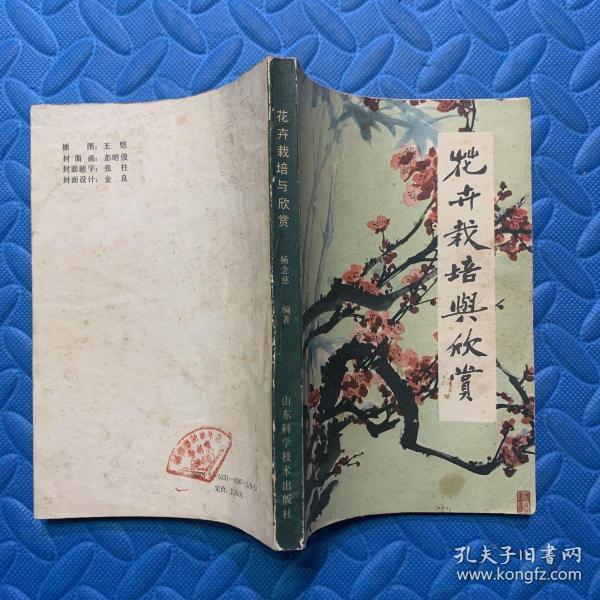 插 图：王 恺
封 面 画：彭昭俊
封面题字：张 柱
封面设计：金 良
定价：2.85元
花卉栽培与欣赏
杨念慈 编著
山东科学技术出版社
花卉栽培與欣赏
孔夫子旧书网
www.kongfz.com